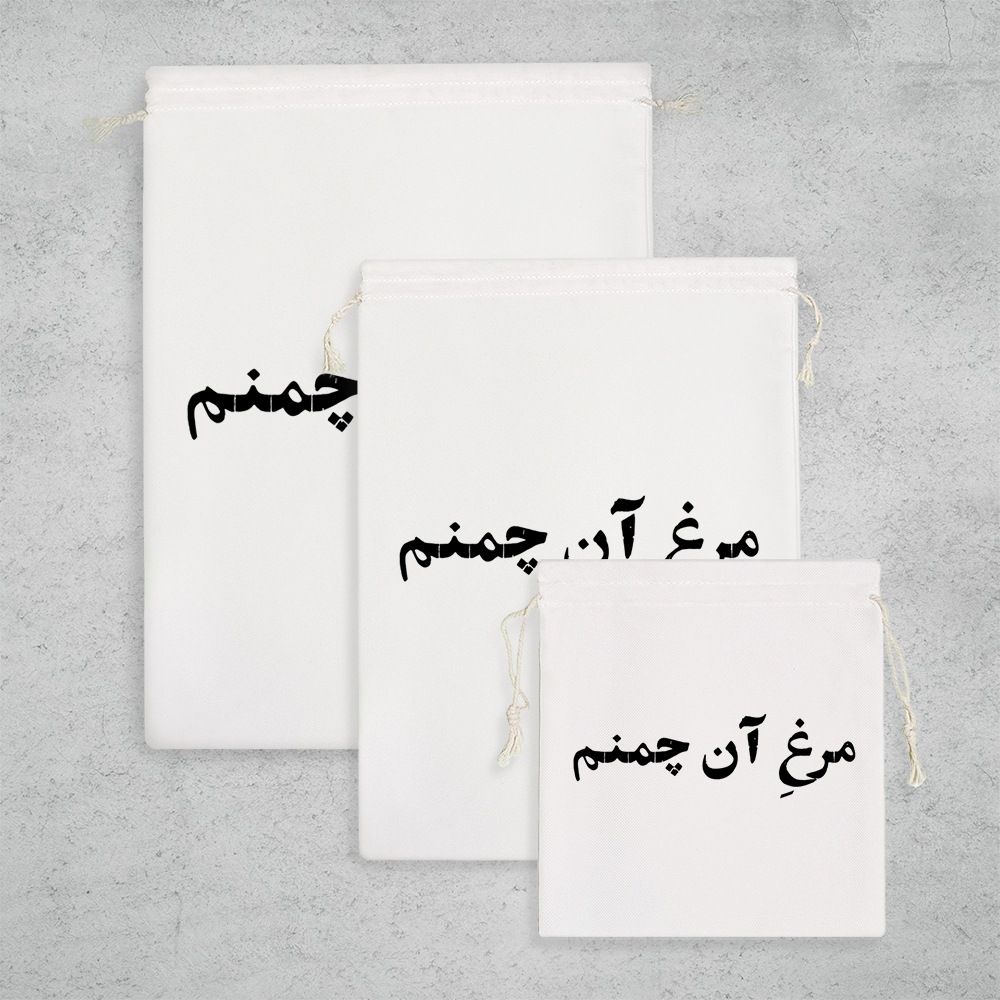 چمنم
مرغ آن چمنم
مرغِ آن چمنم